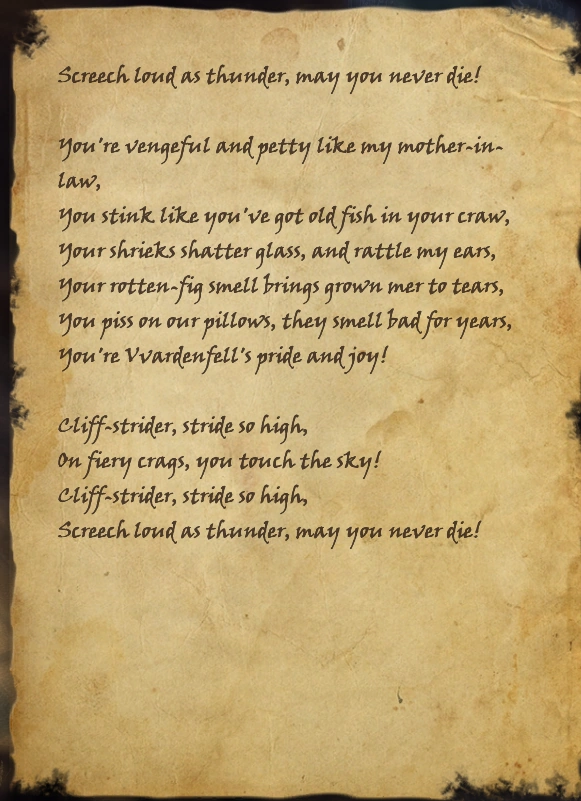 Screech loud as thunder, may you never die!
You're vengeful and petty like my mother-in-
law,
You stink like you've got old fish in your craw,
Your shrieks shatter glass, and rattle my ears,
Your rotten-fig smell brings grown mer to tears,
You piss on our pillows, they smell bad for years,
You're Vvardenfell's pride and joy!
Cliff-strider, stride so high,
On fiery crags, you touch the sky!
Cliff-strider, stride so high,
Screech loud as thunder, may you never die!